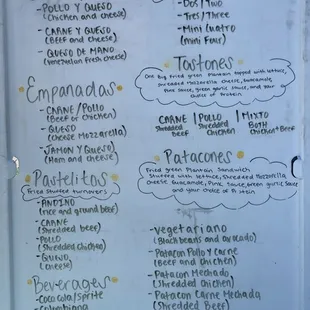 - POLLO Y QUESO
(Chicken and cheese)
- CARNE Y QUESO
(Beef and cheese)
- QUESO DE MANO
(Venezuelan fresh cheese)
Empanadas
- CARNE/POLLO
(Beef or Chicken)
- QUESO
(Cheese Mozzarella)
- JAMON Y QUESO
(Ham and cheese)
Pastelitos
Fried Stuffed turnovers
- ANDINO
(rice and ground beef)
- CARNE
(Shredded beef)
- POLLO
(Shredded Chicken)
- QUESO
(cheese)
Beverages
- Coca Cola/Sprite
- Colombiana
- Dos/Two
- Tres/Three
- Mini Cuatro
(mini Four)
Tostones
One Big fried green plantain topped with lettuce,
shredded Mozzarella cheese, Guacamole,
Pink Sauce, green garlic sauce, and your
choice of Protein
CARNE | POLLO | MIXTO
Shredded Beef
Shredded Chicken
BOTH
Chicken + Beef
Patacones
Fried green Plantain Sandwich
Stuffed with lettuce, Shredded Mozzarella
Cheese Guacamole, Pink Sauce, Green garlic Sauce
and your choice of Protein
- Vegetariano
(Black beans and avocado)
- Patacon Pollo y Carne
(Beef and Chicken)
- Patacon Mechado
(Shredded Chicken)
- Patacon Carne Mechada
(Shredded Beef)